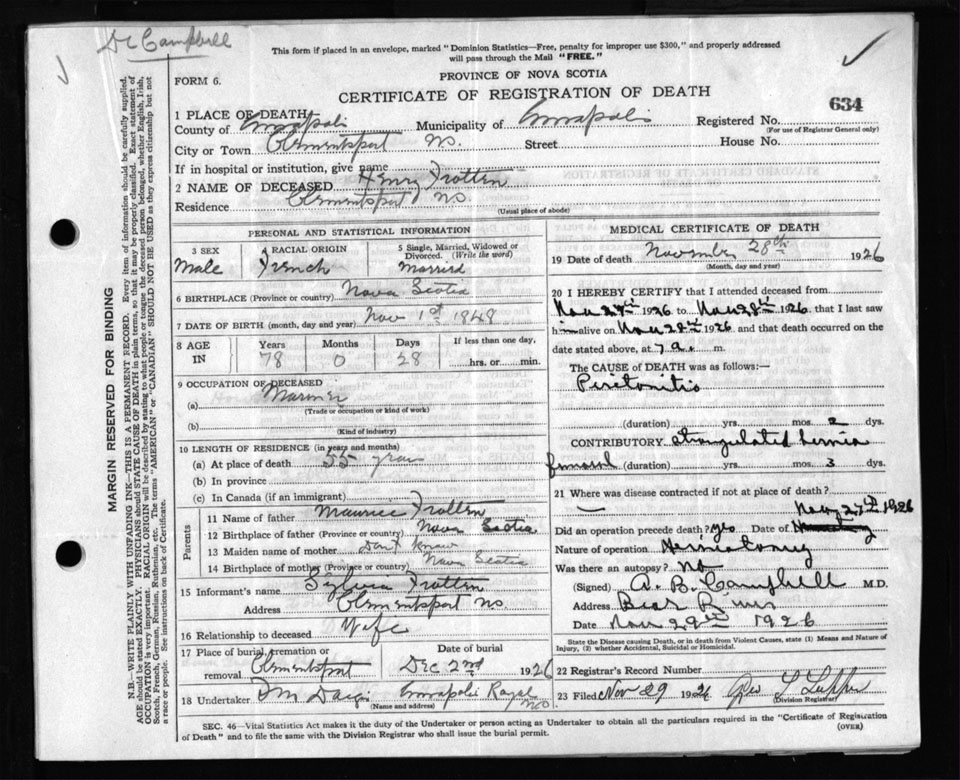 Dr Campbell
This form if placed in an envelope, marked "Dominion Statistics—Free, penalty for improper use $300," and properly addressed
will pass through the Mail "FREE."
FORM 6.
PROVINCE OF NOVA SCOTIA
CERTIFICATE OF REGISTRATION OF DEATH
634
1 PLACE OF DEATH
County of Annapolis Municipality of Annapolis Registered No.
(For use of Registrar General only)
City or Town Clementsport N.S. Street House No.
If in hospital or institution, give name
2 NAME OF DECEASED Henry Trotten
Residence Clementsport NS
(Usual place of abode)
PERSONAL AND STATISTICAL INFORMATION
3 SEX 4 RACIAL ORIGIN 5 Single, Married, Widowed or
Divorced. (Write the word)
Male French Married
6 BIRTHPLACE (Province or country) Nova Scotia
7 DATE OF BIRTH (month, day and year) Nov 1st 1848
8 AGE IN Years Months Days If less than one day,
78 0 28 hrs. or min.
9 OCCUPATION OF DECEASED
(a) Mariner
(Trade or occupation or kind of work)
(b)
(Kind of industry)
10 LENGTH OF RESIDENCE (in years and months)
(a) At place of death 55 years
(b) In province
(c) In Canada (if an immigrant)
Parents
11 Name of father Maurice Trotten
12 Birthplace of father (Province or country) Nova Scotia
13 Maiden name of mother Dont know
14 Birthplace of mother (Province or country) Nova Scotia
15 Informant's name Sylvia Trotten
Address Clementsport NS
16 Relationship to deceased Wife
17 Place of burial, cremation or Date of burial
removal Clementsport Dec 2nd 1926
18 Undertaker Annapolis Royal NS
(Name and address)
MEDICAL CERTIFICATE OF DEATH
19 Date of death November 28th 1926
(Month, day and year)
20 I HEREBY CERTIFY that I attended deceased from
Nov 27th 1926 to Nov 28th 1926 that I last saw
him alive on Nov 28th 1926 and that death occurred on the
date stated above, at 7 a. m.
The CAUSE OF DEATH was as follows:—
Peritonitis
(duration) yrs. mos. 2 dys.
CONTRIBUTORY strangulated hernia
femoral (duration) yrs. mos. 3 dys.
21 Where was disease contracted if not at place of death?
—
Nov 27th 1926
Did an operation precede death? yes Date of
Nature of operation Herniotomy
Was there an autopsy? No
(Signed) A. B. Campbell M.D.
Address Bear River
Date Nov 29th 1926
State the Disease causing Death, or in death from Violent Causes, state (1) Means and Nature of
Injury, (2) whether Accidental, Suicidal or Homicidal.
22 Registrar's Record Number
23 Filed Nov 29 1926 Geo L
(Division Registrar)
SEC. 46—Vital Statistics Act makes it the duty of the Undertaker or person acting as Undertaker to obtain all the particulars required in the "Certificate of Registration
of Death" and to file the same with the Division Registrar who shall issue the burial permit.
(OVER)
MARGIN RESERVED FOR BINDING
N.B.—WRITE PLAINLY WITH UNFADING INK—THIS IS A PERMANENT RECORD. Every item of information should be carefully supplied.
AGE should be stated EXACTLY. PHYSICIANS should STATE CAUSE OF DEATH in plain terms, so that it may be properly classified. Exact statement of
OCCUPATION is very important. RACIAL ORIGIN will be described by stating to what people or tongue the deceased person belonged, whether English, Irish,
Scotch, French, German, Russian, Ruthenian, etc. The terms "AMERICAN" or "CANADIAN" SHOULD NOT BE USED as they express citizenship but not
a race or people. See instructions on back of Certificate.